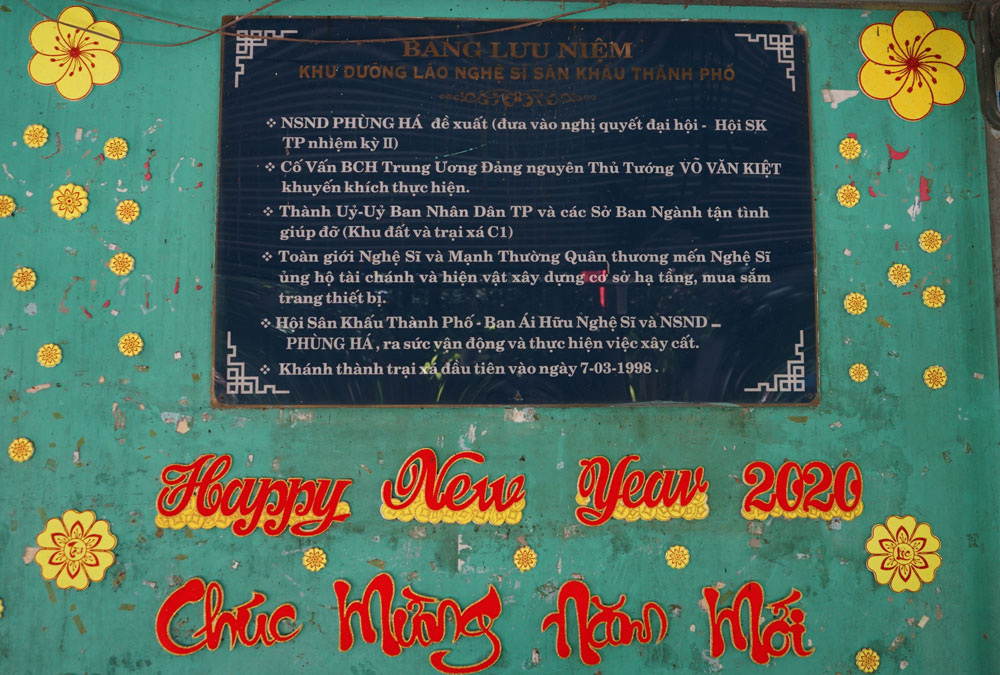 BẢNG LƯU NIỆM
KHU DƯỠNG LÃO NGHỆ SĨ SÂN KHẤU THÀNH PHỐ
❖ NSND PHÙNG HÁ đề xuất (đưa vào nghị quyết đại hội - Hội SK
TP nhiệm kỳ II)
❖ Cố Vấn BCH Trung Ương Đảng nguyên Thủ Tướng VÕ VĂN KIỆT
khuyến khích thực hiện.
❖ Thành Uỷ-Uỷ Ban Nhân Dân TP và các Sở Ban Ngành tận tình
giúp đỡ (Khu đất và trại xá C1)
❖ Toàn giới Nghệ Sĩ và Mạnh Thường Quân thương mến Nghệ Sĩ
ủng hộ tài chánh và hiện vật xây dựng cơ sở hạ tầng, mua sắm
trang thiết bị.
❖ Hội Sân Khấu Thành Phố - Ban Ái Hữu Nghệ Sĩ và NSND –
PHÙNG HÁ , ra sức vận động và thực hiện việc xây cất.
❖ Khánh thành trại xá đầu tiên vào ngày 7-03-1998 .
Happy New Year 2020
Chúc Mừng Năm Mới